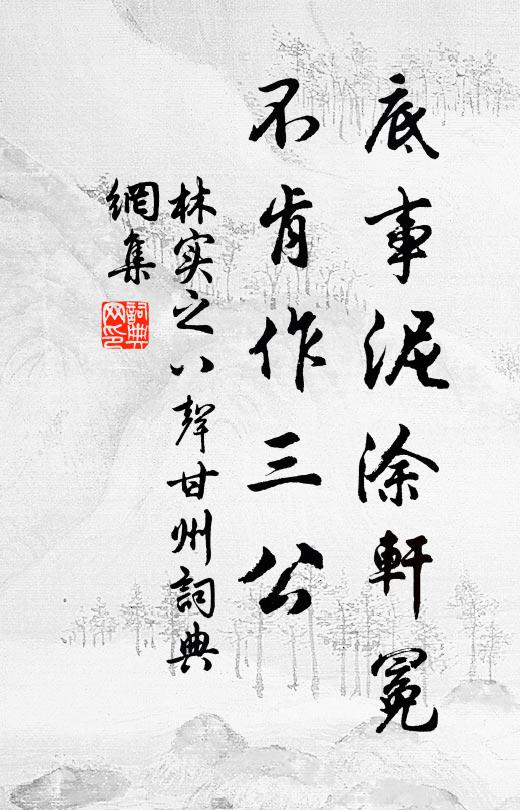 底事泥涂軒冕
不肯作三公
林实之八聲甘州詞典
網集
詞典
网印